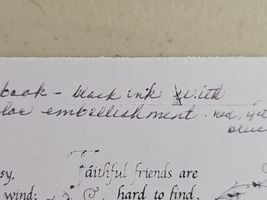 book - black ink with
lor embellishment - red, ye
blue
sy, faithful friends are
wind; hard to find.